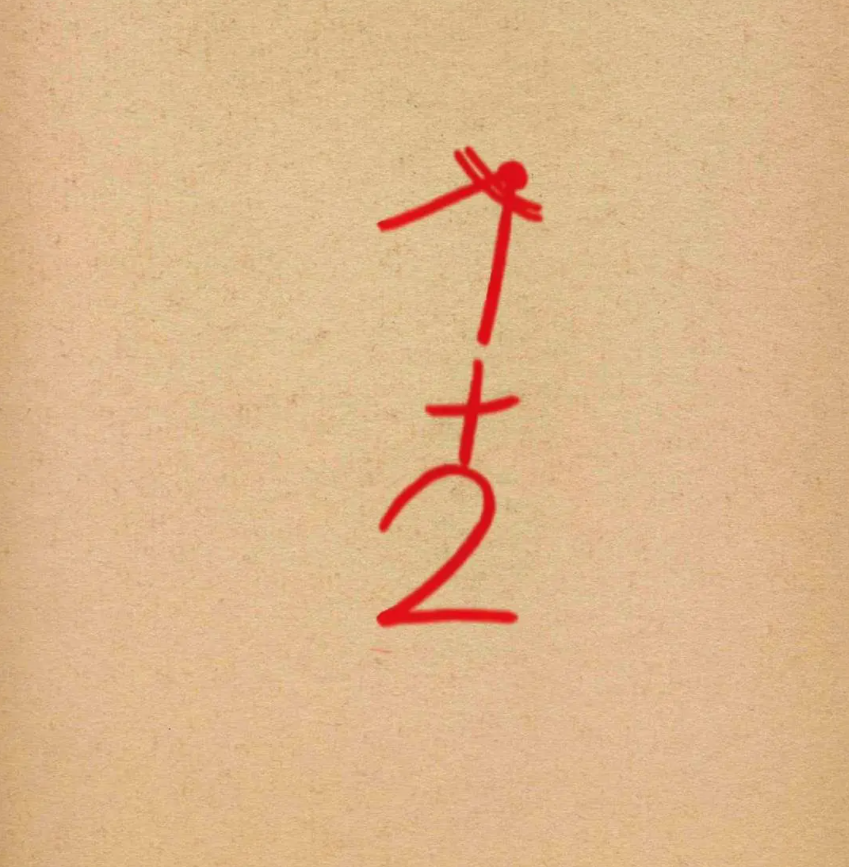 1
+
2